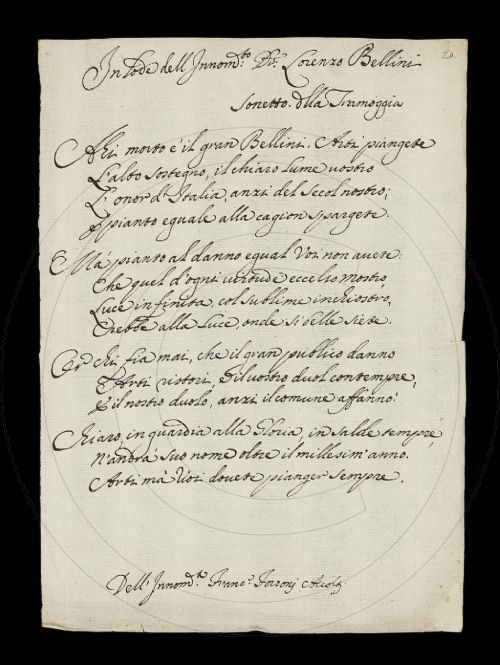 20
In Lode dell'Innom.to Dr. Lorenzo Bellini
Sonetto. dlla Tramoggia
Ahi morto è il gran Bellini. Arti piangete
L'alto sostegno, il chiaro lume vostro
L'onor d'Italia, anzi del Secol nostro;
E pianto eguale alla cagion spargete.
Ma' pianto al danno egual Voi non avete:
Che quel d'ogni virtude eccelso mostro
Luce infinita, col sublime inchiostro,
Crebbe alla Luce, onde si belle siete.
Or chi fia mai, che il gran publico danno
D'Arti ristori, e il vostro duol contempre,
E il nostro duolo, anzi il comune affanno?
Chiaro, in guardia alla Gloria, in salde tempre,
N'andrà suo nome oltre il millesim'anno.
Arti mà Voi dovete pianger sempre.
Dell'Innom.to Franc.o Forzonj